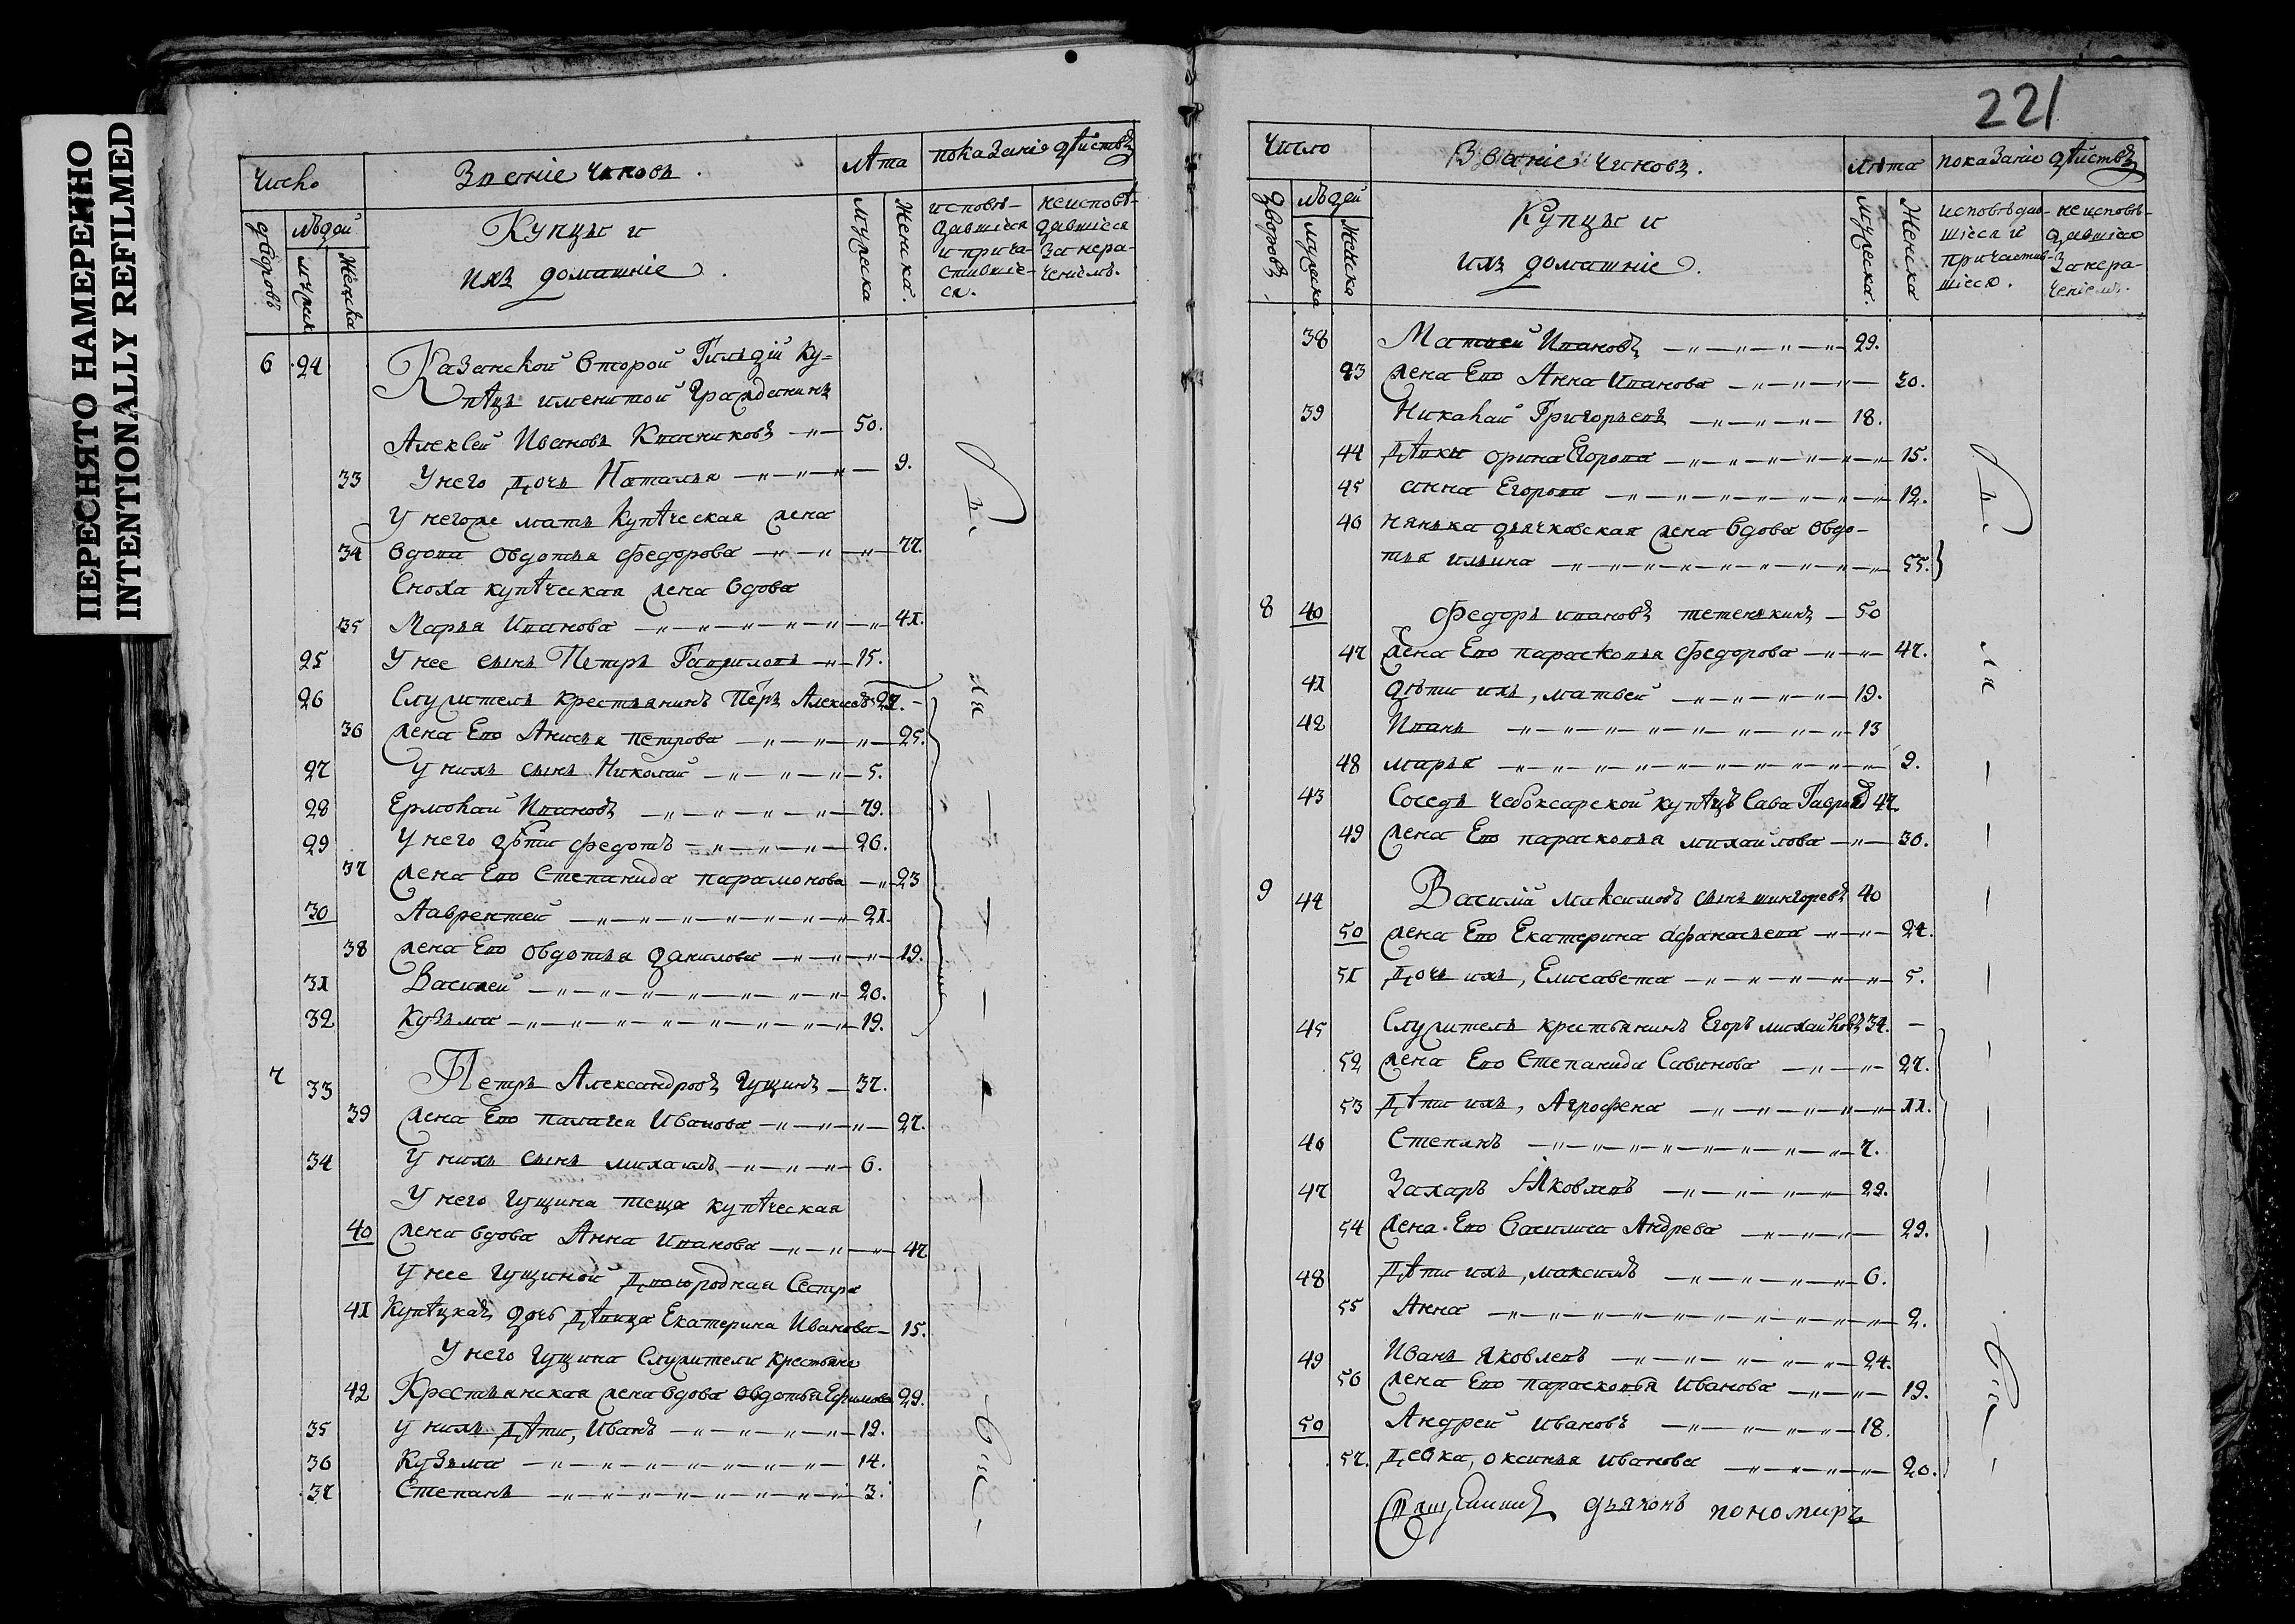 ПЕРЕСНЯТО НАМЕРЕННО
INTENTIONALLY REFILMED
Число
Звание чиновъ.
лѣта
показание дѣиствъ
дворовъ
людей
мужеск
женска
Купцы и
ихъ домашние.
мужеска
женска.
исповѣ-
давшiеся
и прича-
стившiе-
ся.
неисповѣ-
давшiеся
за нера-
ченiемъ.
6 24 Казанской второй Гильдiи ку-
пѣцъ именитой гражданинъ
Алексей Ивановъ 50.
33 У него дочь Наталья 9.
У негоже мать купѣческая жена
34 вдова Овдотья Федорова 77.
Сноха купѣческая жена вдова
35 Марья Иванова 41.
25 У нее сынъ Петръ Гавриловъ 15.
26 Служитель крестьянинъ Петръ Алексеевъ 27.
36 жена Ево Анисья петрова 25.
27 У нихъ сынъ Николай 5.
28 Ермолай Ивановъ 79.
29 У него дѣти Федотъ 26.
37 жена Ево Степанида парамонова 23
30 Лаврентей 21.
38 жена Ево Овдотья данилова 19.
31 Василей 20.
32 Кузьма 19.
7 33 Петръ Александровъ Гущинъ 37.
39 жена Ево палагея Иванова 27.
34 У нихъ сынъ михаилъ 6.
У него Гущина теща купѣческая
40 жена вдова Анна Иванова 47
У нее Гущиной двоюродная Сестра
41 Купѣцкая дочь дѣвица Екатерина Иванова 15.
У него Гущина Служители крестьяне
42 Крестьянская жена вдова Овдотья Ефимова 29.
35 у нихъ дѣти, Иванъ 19.
36 Кузьма 14.
37 Степанъ 3.
221
Число
Званiе чиновъ.
лѣта
показанiе дѣиствъ
дворовъ
людей
мужеска
женска
Купцы и
ихъ домашнiе.
мужеска.
женска
исповѣдав-
шiеся и
причастив-
шiеся.
неисповѣ-
давшiеся
за нера-
ченiемъ.
38 Матвей Ивановъ 29.
43 жена Ево Анна Иванова 30.
39 Николай Григорьевъ 18.
44 Дѣвки орина Егорова 15.
45 анна Егорова 12.
46 нянька дьячковская жена вдова Овдо-
тья ильина 55.
8 40 Федоръ ивановъ тетенькинъ 50
47 жена Ево парасковья Федорова 47.
41 дѣти ихъ, матвей 19.
42 Иванъ 13
48 марья 9.
43 Соседъ чебоксарской купѣцъ Сава Гаврилов 47
49 жена Ево парасковья михаилова 30.
9 44 Василiй максимовъ сынъ 40
50 жена Ево Екатерина афанасьева 24.
51 Дочь ихъ, Елисавета 5.
45 Служитель крестьянинъ Егоръ михайловъ 34.
52 жена Ево Степанида Савинова 27.
53 Дѣти ихъ, Агрофена 11.
46 Степанъ 7.
47 Захаръ Яковлевъ 29.
54 жена Ево Василиса Андрева 29.
48 Дѣти ихъ, максимъ 6.
55 Анна 2.
49 Иванъ Яковлевъ 24.
56 жена Ево парасковья Иванова 19.
50 Андрей ивановъ 18.
57. Девка, оксинья иванова 20.
Священникъ дьяконъ пономаръ